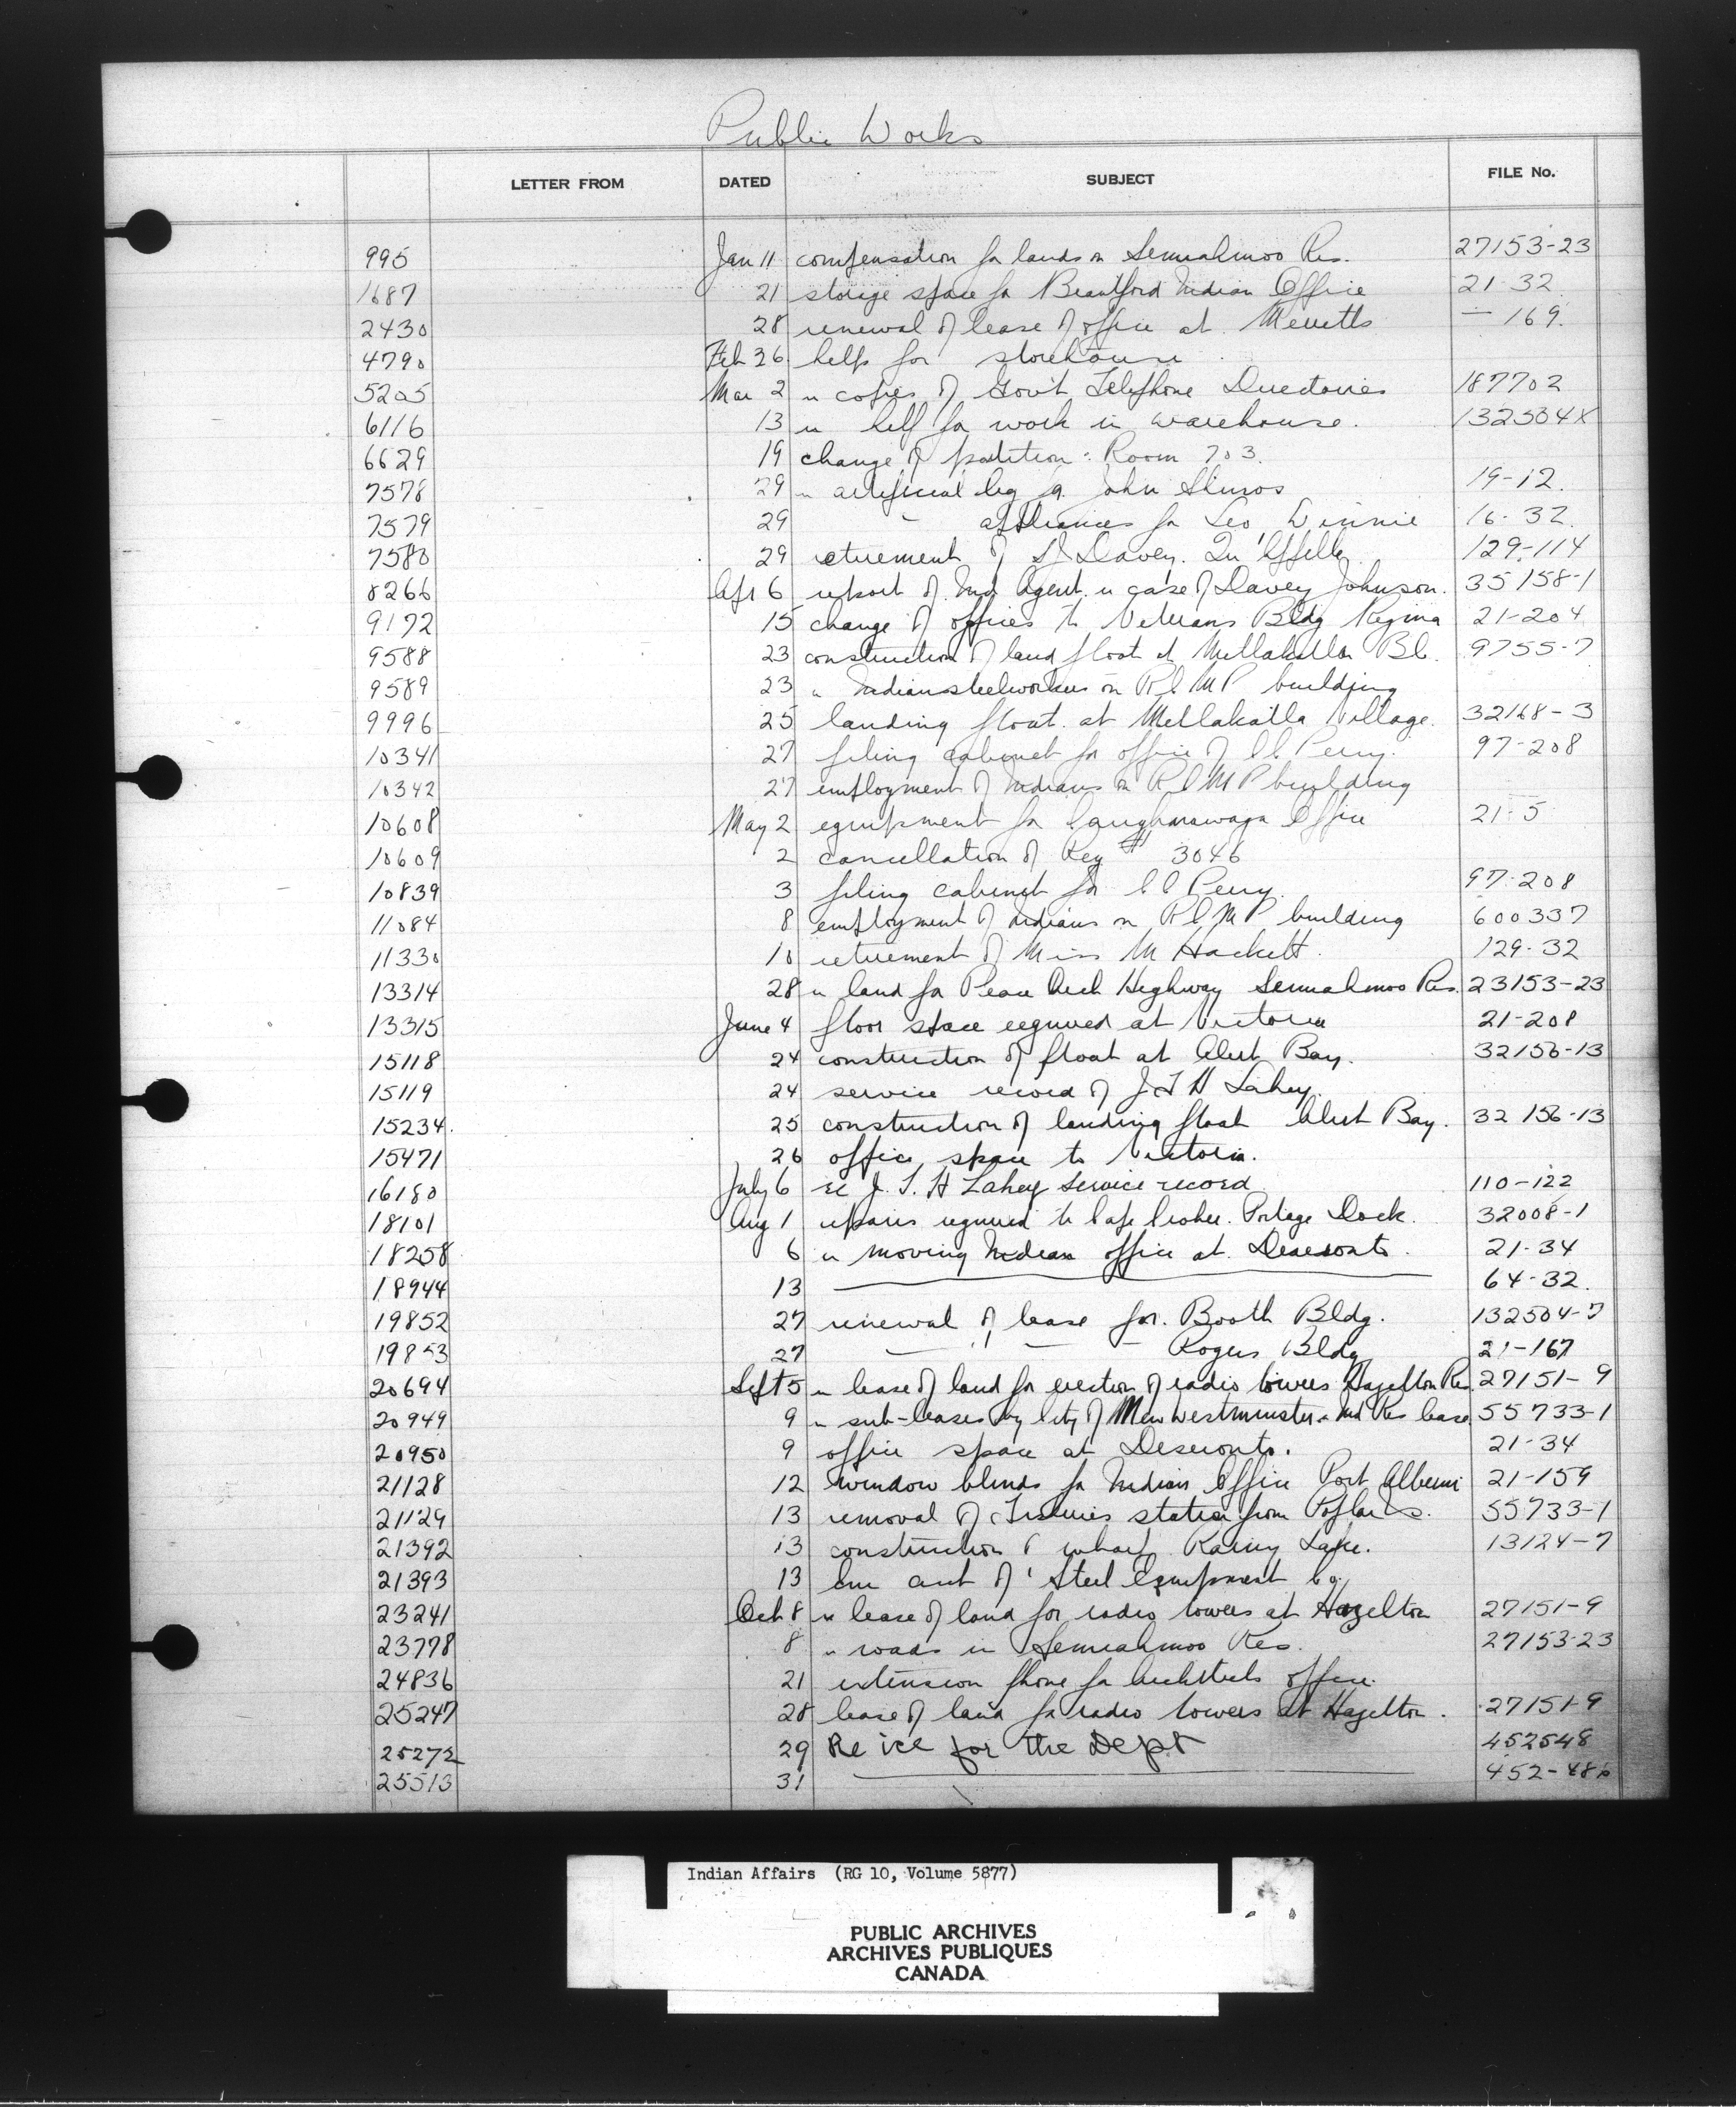 Public Works
LETTER FROM DATED SUBJECT FILE No.
995 Jan 11 compensation for lands on Semiahmoo Res. 27153-23
1687 21 storage space for Brantford Indian Office 21-32
2430 28 renewal of lease of office at Merritt — 169.
4790 Feb 26 help for storehouse
5205 Mar 2 " copies of Gov't Telephone Directories 187702
6116 13 " help for work in warehouse. 132504X
6629 19 change of partition: Room 703.
7578 29 " artificial leg for John 19-12.
7579 29 " appliances for Leo Winnie 16-32.
7580 29 retirement of Davey. Qu'Appelle 129-114
8266 Apr 6 report of Ind Agent in case of Davey Johnson. 35158-1
9172 15 change of offices to Veterans Bldg Regina 21-204
9588 23 construction of land float at Metlakatla B.C. 9755-7
9589 23 " Indian steelworkers on R.C.M.P building
9996 25 landing float at Metlakatla Village. 32168-3
10341 27 filing cabinet for office of C C Perry. 97-208
10342 27 employment of Indians on R C M P building
10608 May 2 equipment for Caughnawaga Office 21-5
10609 2 cancellation of Req # 3046
10839 3 filing cabinet for C C Perry. 97-208
11084 8 employment of Indians on R C M P building 600337
11330 10 retirement of Miss M Hackett. 129-32
13314 28 " land for Peace Arch Highway Semiahmoo Res. 23153-23
13315 June 4 floor space required at Victoria 21-208
15118 24 construction of float at Alert Bay. 32156-13
15119 24 service record of J T H Lahey.
15234. 25 construction of landing float Alert Bay. 32156-13
15471 26 office space to Victoria.
16180 July 6 re J. T. H Lahey service record 110-122
18101 Aug 1 repairs required to Cape Croker. Portage Dock. 32008-1
18258 6 " moving Indian office at Deseronto. 21-34
18944 13 —— 64-32.
19852 27 renewal of lease for. Booth Bldg. 132504-7
19853 27 — " — — Rogers Bldg 21-167
20694 Sept 5 " lease of land for erection of radio towers Hazelton Res. 27151-9
20949 9 " sub-leases by City of New Westminster " Ind Res lease 55733-1
20950 9 office space at Deseronto. 21-34
21128 12 window blinds for Indian Office Port Alberni 21-159
21129 13 removal of Fisheries station from Poplar Is. 55733-1
21392 13 construction of wharf Rainy Lake. 13124-7
21393 13 acct of Steel Equipment Co.
23241 Oct 8 " lease of land for radio towers at Hazelton 27151-9
23778 8 " roads in Semiahmoo Res. 27153-23
24836 21 extension phone for Architects office.
25247 28 lease of land for radio towers at Hazelton. 27151-9
25272 29 Re ice for the Dept 452548
25513 31 —— 452-486
Indian Affairs (RG 10, Volume 5877)
PUBLIC ARCHIVES
ARCHIVES PUBLIQUES
CANADA